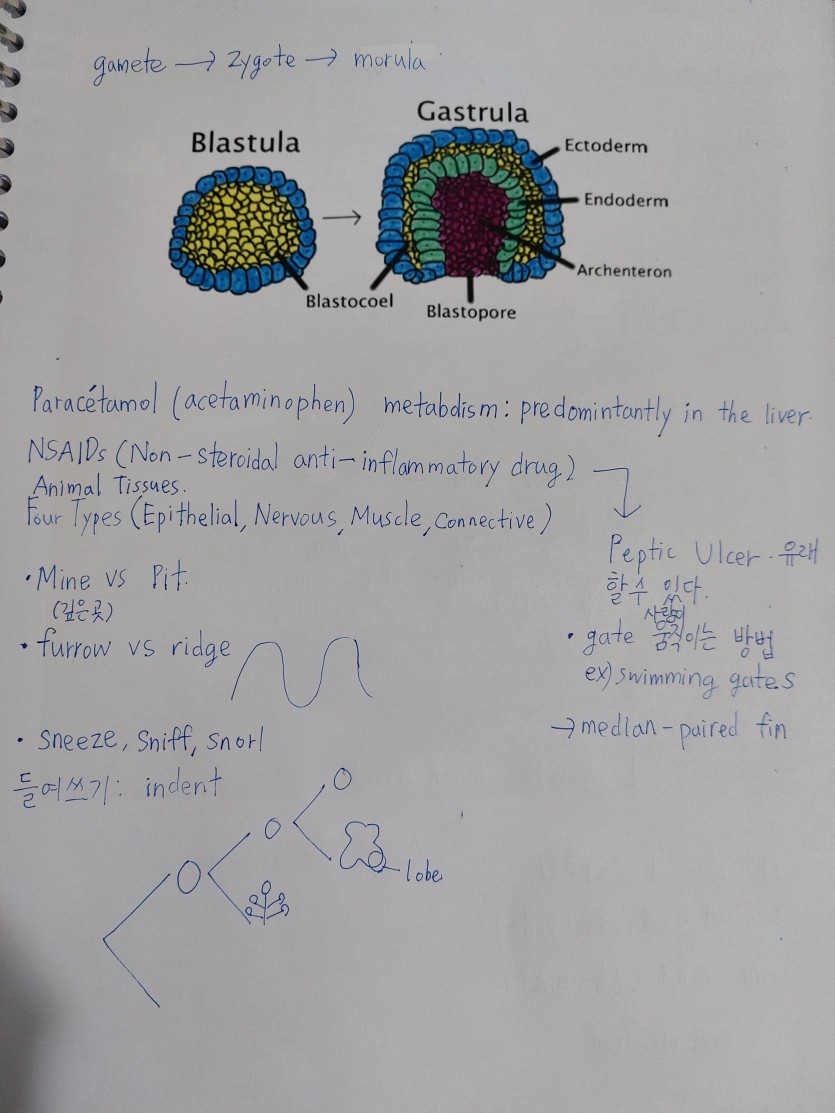 gamete → zygote → morula
Gastrula
Blastula
Ectoderm
Endoderm
Archenteron
Blastocoel
Blastopore
Paracétamol (acetaminophen) metabolism: predomintantly in the liver.
NSAIDs (Non-steroidal anti-inflammatory drug)
Animal Tissues.
Four Types (Epithelial, Nervous, Muscle, Connective)
Peptic Ulcer. 유래
할 수 있다.
• Mine vs Pit.
(깊은 곳)
• furrow vs ridge
사람이
• gate 움직이는 방법
ex) swimming gates
→ median-paired fin
• Sneeze, Sniff, Snorl
들여쓰기: indent
lobe